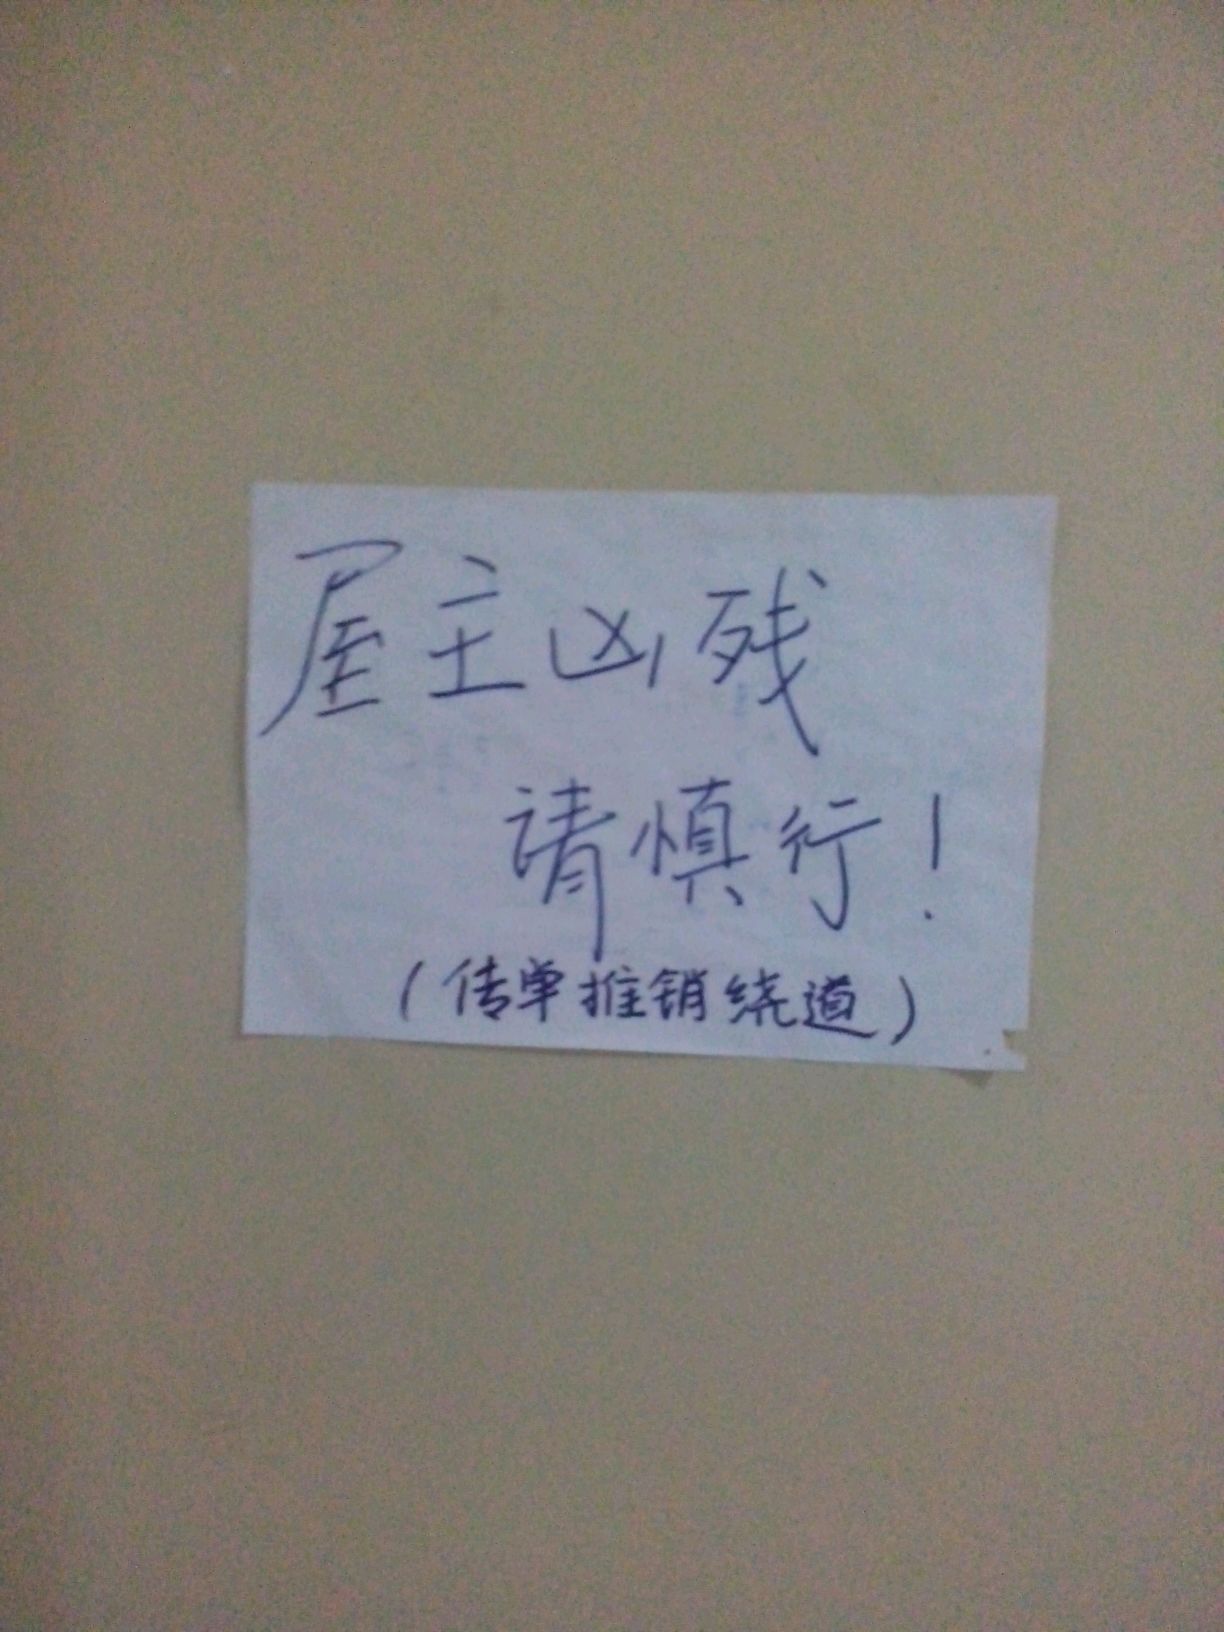 屋主凶残
请慎行！
（传单推销绕道）